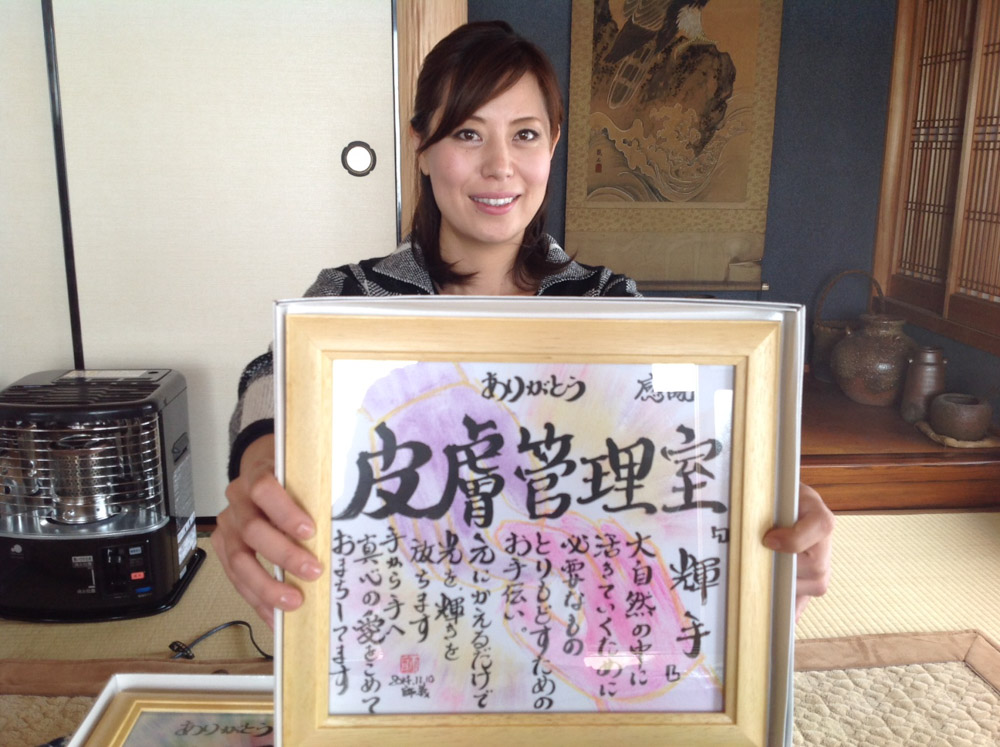 感謝
ありがとう
皮膚管理室
『輝手』
大自然の中に
活きていくために
必要なもの
とりもどすための
お手伝い。
元にかえるだけで
光を、輝きを
放ちます
手から手へ
真心の愛をこめて
おまちしてます
ありがとう